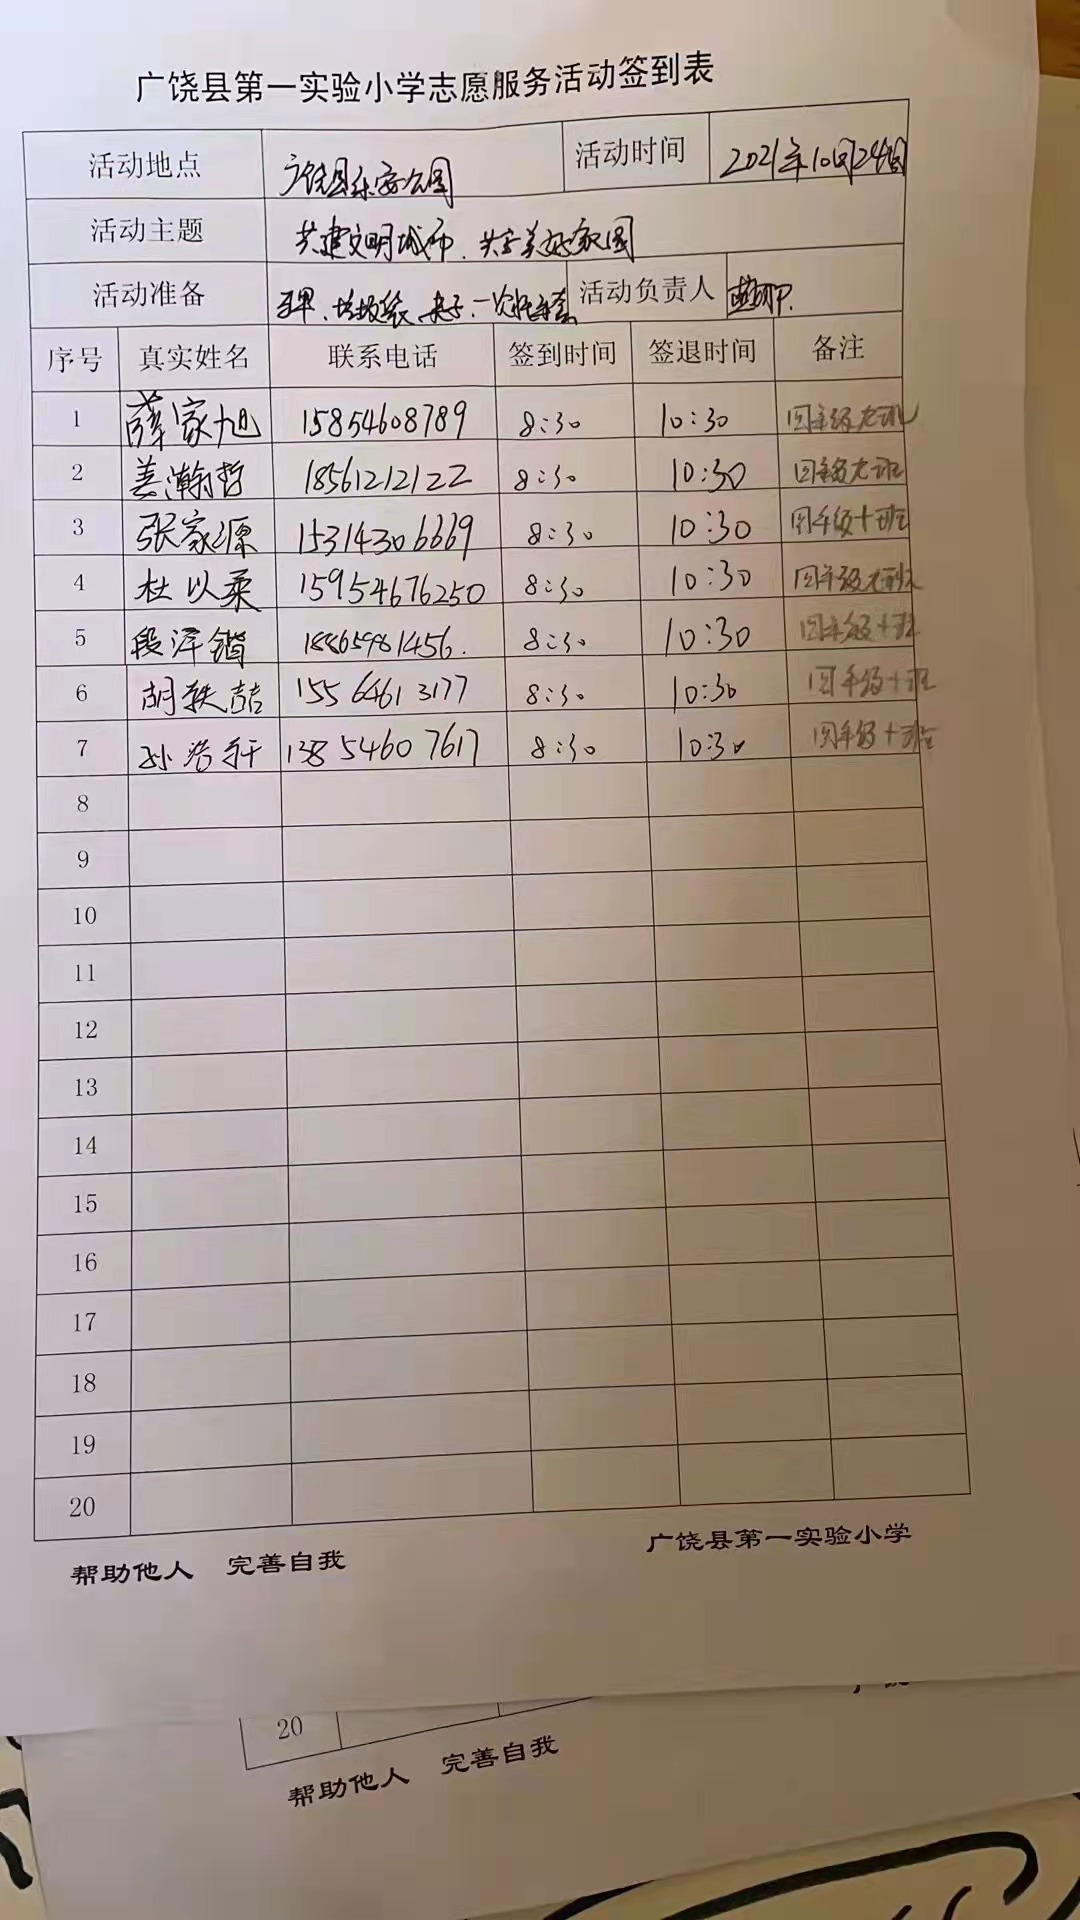 广饶县第一实验小学志愿服务活动签到表
活动地点 广饶县乐安公园 活动时间 2021年10月24日
活动主题 共建文明城市、共享美好家园
活动准备 马甲、垃圾袋、夹子、一次性手套 活动负责人
序号 真实姓名 联系电话 签到时间 签退时间 备注
1 薛家旭 15854608789 8:30 10:30 四年级九班
2 姜瀚哲 18561212122 8:30 10:30 四年级九班
3 张家源 15314306669 8:30 10:30 四年级十班
4 杜以柔 15954676250 8:30 10:30 四年级九班
5 段泽锴 18865981456. 8:30 10:30 四年级十班
6 胡轶喆 15564613177 8:30 10:30 四年级十班
7 孙浩轩 13854607617 8:30 10:30 四年级十班
8
9
10
11
12
13
14
15
16
17
18
19
20
帮助他人 完善自我 广饶县第一实验小学
20
帮助他人 完善自我